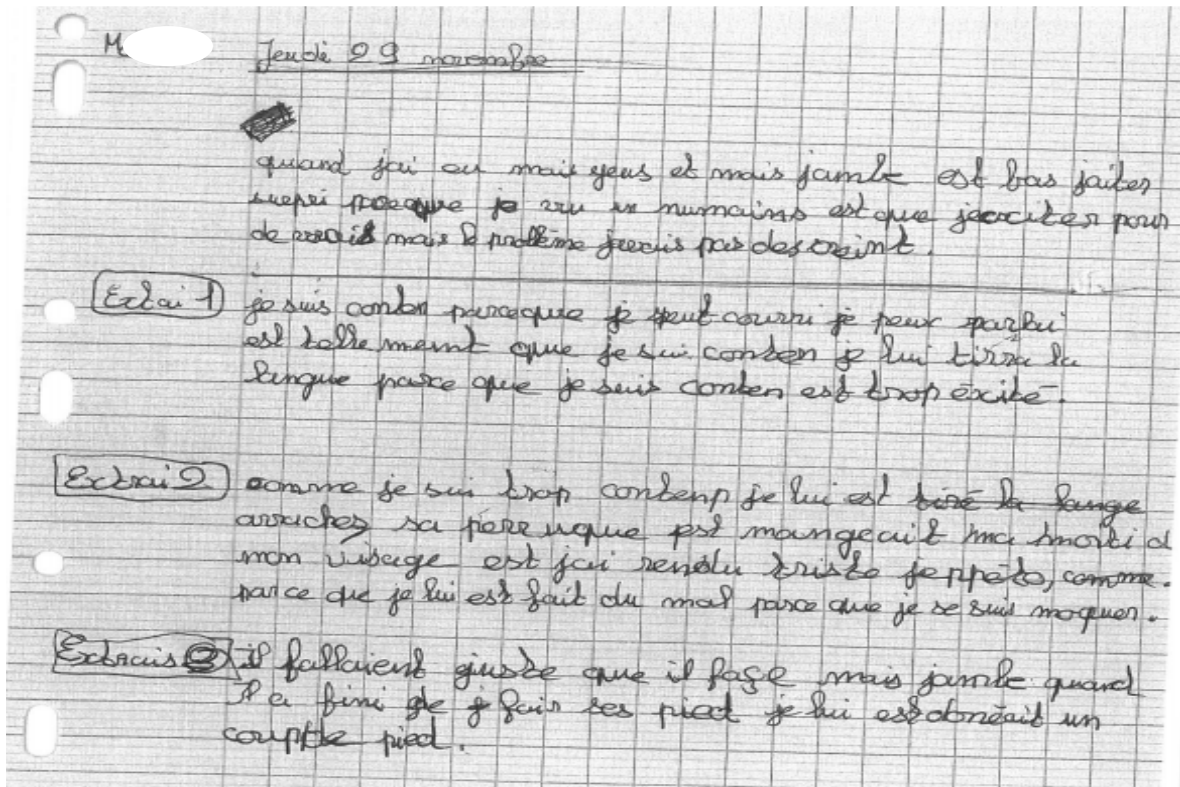 M
Jeudi 29 novembre
quand jai eu mais yeus et mais jambe est bas jaiter
suepri parceque je vru un numains est que jexciter pour
de vrais mais le problème javais pas des craint.
Extai 1
je suis conten parceque je peut courru je peux parlui
est telle ment que je sui conten je lui tirra la
langue parce que je suis conten est trop éxité.
Extrai 2
comme je sui trop contenp je lui est tiré la lange
arracher sa perruque est mangeait ma moiti d
mon visage est jai rendu triste jeppéto, comme.
parce que je lui est fait du mal parce que je se suis moquer.
Extrais 3
il fallaient giuste que il fase mais jambe quand
il a fini de fair ses pied je lui est donéait un
coup de pied.